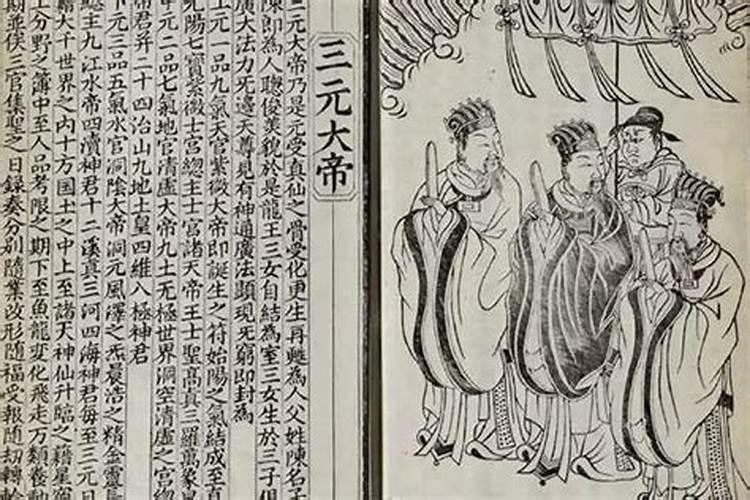 三元大帝
三元大帝乃是元受真仙之骨受化更生再甦為人父姓陳名子
陳即為人聰俊美貌於是龍王三女自結為室三女生於三子俱
廣大法力旡邊天尊見有神通廣法顯現旡窮即封為
上元一品九氣天官紫微大帝即誕生之符始陽之氣結成至真
陽七寶紫微士宮總主士宮諸天帝王士聖高真三羅萬象星
中元二品七氣地官清虛大帝九土无極世界洞空清虛之宮總
帝君并二十四治山九地土皇四維八極神君
下元三品五氣水官洞陰大帝洞元風澤之炁晨浩之精金靈長
總主九江水帝四瀆神君十二溪真三河四海神君每至三元日
籍大千世界之內十方国土之中上至諸天神仙升臨之籍星宿
上分野之簿中至人品考限之期下至魚龍變化飛走万類養動
期並俟三官集聖之日録奏分別隨業改形隨福受報隨劫轉輪